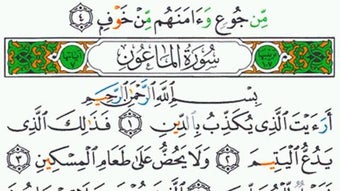 مِّن جُوعٍ وَءَامَنَهُم مِّنْ خَوْفٍ ٤
سُورَةُ المَاعُونِ
بِسْمِ ٱللَّهِ ٱلرَّحْمَٰنِ ٱلرَّحِيمِ
أَرَءَيْتَ ٱلَّذِى يُكَذِّبُ بِٱلدِّينِ ١ فَذَٰلِكَ ٱلَّذِى
يَدُعُّ ٱلْيَتِيمَ ٢ وَلَا يَحُضُّ عَلَىٰ طَعَامِ ٱلْمِسْكِينِ ٣